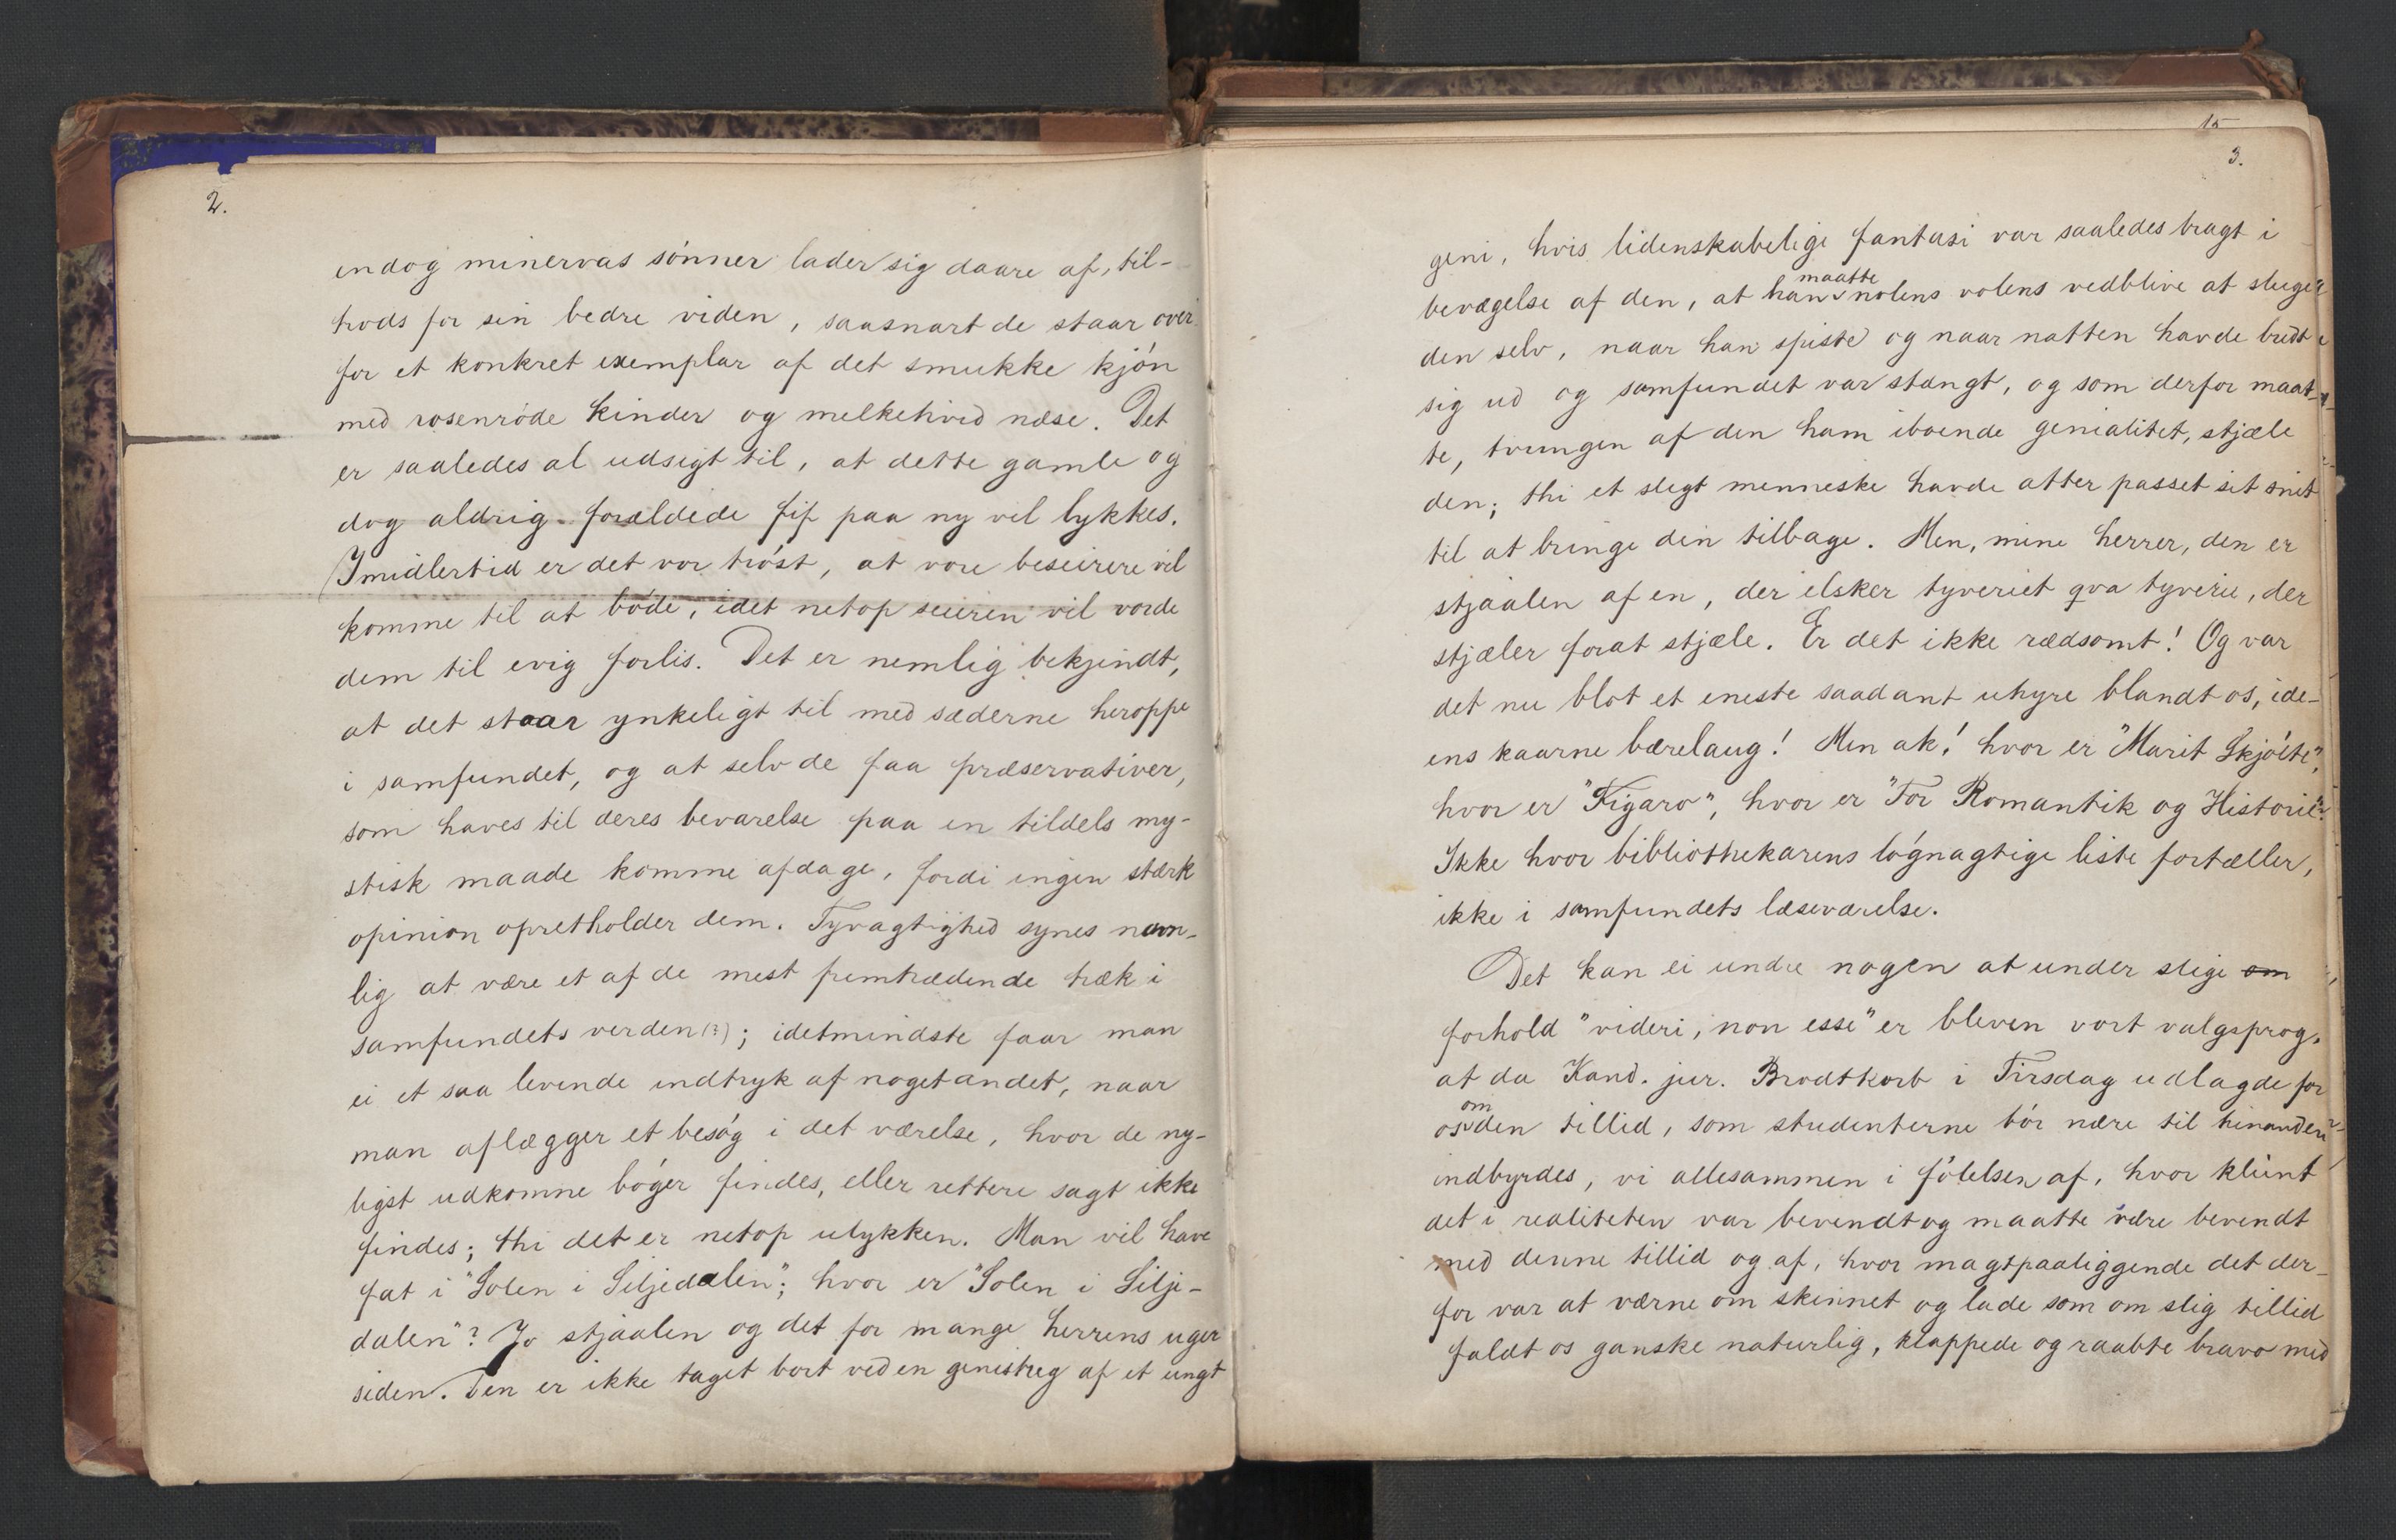 2.
endog minervas sønner lader sig daare af, til-
trods for sin bedre viden, saasnart de staar over
for et konkret exemplar af det smukke kjøn
med rosenrøde kinder og melkehvid næse. Det
er saaledes al udsigt til, at dette gamle og
dog aldrig forældede fif paa ny vil lykkes.
Imidlertid er det vor trøst, at vore beseirere vil
komme til at bøde, idet netop seieren vil vorde
dem til evig forlis. Det er nemlig bekjendt,
at det staar ynkeligt til med sæderne heroppe
i samfundet, og at selv de faa præservativer,
som haves til deres bevarelse paa en tildels my-
stisk maade komme afdage, fordi ingen stærk
opinion opretholder dem. Tyvagtighed synes navn-
lig at være et af de mest fremtrædende træk i
samfundets verden (?); idetmindste faar man
ei et saa levende indtryk af noget andet, naar
man aflægger et besøg i det værelse, hvor de ny-
ligst udkomne bøger findes, eller rettere sagt ikke
findes; thi det er netop ulykken. Man vil have
fat i "Solen i Siljedalen"; hvor er "Solen i Silje-
dalen"? Jo stjaalen og det for mange herrens uger
siden. Den er ikke taget bort ved en genistreg af et ungt
15
3.
geni, hvis lidenskabelige fantasi var saaledes bragt i
bevægelse af den, at han maatte nolens volens vedblive at sluge
den selv, naar han spiste og naar natten havde bredt
sig ud og samfundet var stængt, og som derfor maat-
te, tvungen af den ham iboende genialitet, stjæle
den; thi et slegt menneske havde atter passet sit snit
til at bringe den tilbage. Men, mine herrer, den er
stjaalen af en, der elsker tyveriet qva tyveri, der
stjæler forat stjæle. Er det ikke rædsomt! Og var
det nu blot et eneste saadant uhyre blandt os, ide-
ens kaarne bærelaug! Men ak! hvor er "Marit Skjølte",
hvor er "Figaro", hvor er "For Romantik og Historie"?
Ikke hvor bibliothekarens løgnagtige liste fortæller,
ikke i samfundets læseværelse.
Det kan ei undre nogen at under slige om
forhold "videri, non esse" er bleven vort valgsprog,
at da Kand. jur. Brodtkorb i Tirsdag udlagde for
os om den tillid, som studenterne bør nære til hinanden
indbyrdes, vi allesammen i følelsen af, hvor klent
det i realiteten var bevendt og maatte være bevendt
med denne tillid og af, hvor magtpaaliggende det der-
for var at værne om skinnet og lade som om slig tillid
faldt os ganske naturlig, klappede og raabte bravo med